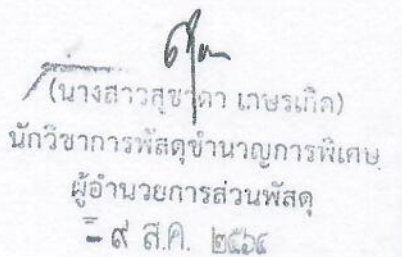 (นางสาวสุชาดา เกษรเกิด)
นักวิชาการพัสดุชำนาญการพิเศษ
ผู้อำนวยการส่วนพัสดุ
- ๙ ส.ค. ๒๕๖๔